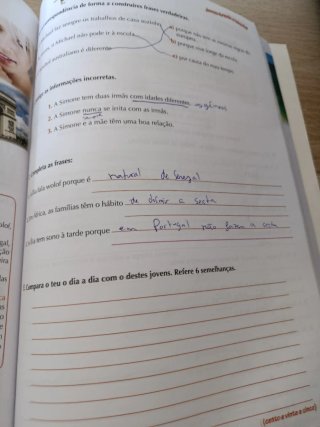 correspondência de forma a construires frases verdadeiras.
sempre os trabalhos de casa sozinho
a) porque não tem as mesmas regras da
Michael não pode ir à escola
b) porque vive longe da escola
australiano é diferente
c) por causa do mau tempo
as informações incorretas.
1. A Simone tem duas irmãs com idades diferentes.
2. A Simone nunca se irrita com as irmãs.
3. A Simone e a mãe têm uma boa relação.
Completa as frases:
fala wolof porque é natural de Senegal
África, as famílias têm o hábito de dormir a sesta
tem sono à tarde porque em Portugal não fazem a sesta
Compara o teu o dia a dia com o destes jovens. Refere 6 semelhanças.
(cento e vinte e cinco)